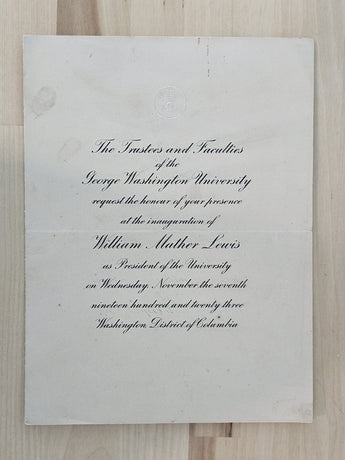 The Trustees and Faculties
of the
George Washington University
request the honour of your presence
at the inauguration of
William Mather Lewis
as President of the University
on Wednesday, November the seventh
nineteen hundred and twenty three
Washington, District of Columbia